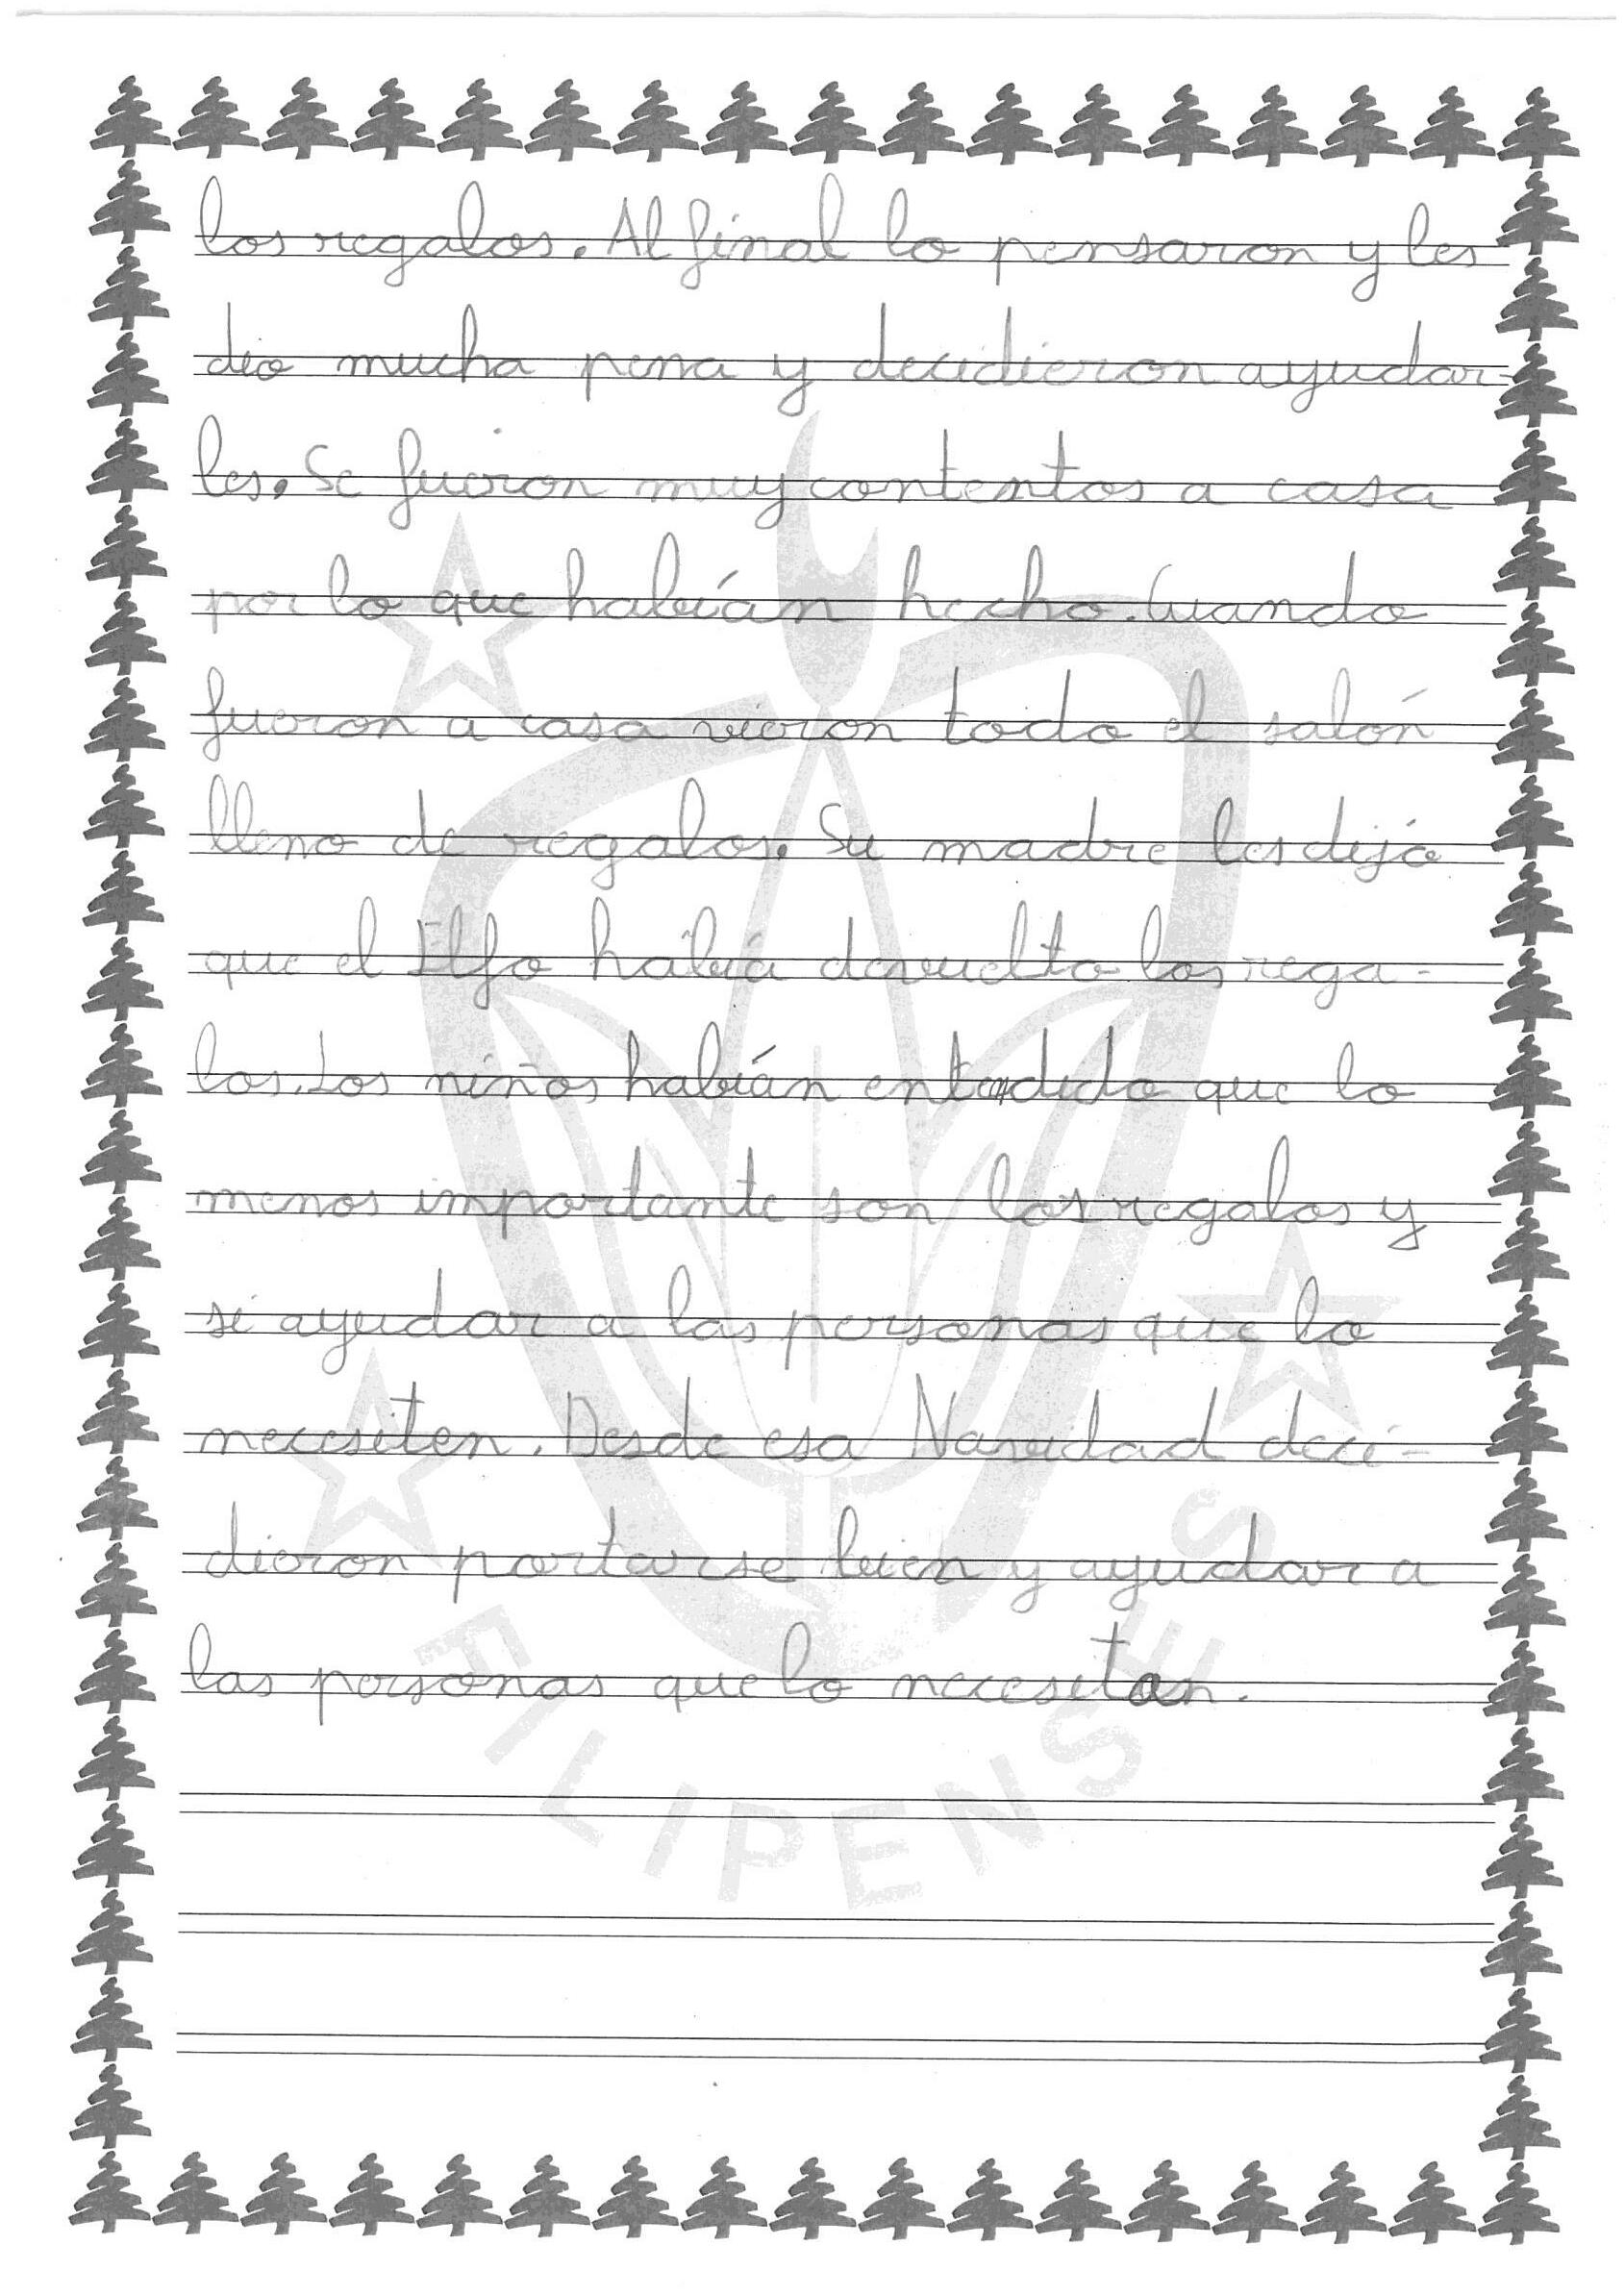 los regalos. Al final lo pensaron y les
dio mucha pena y decidieron ayudar-
les. Se fueron muy contentos a casa
por lo que habían hecho. Cuando
fueron a casa vieron todo el salón
lleno de regalos. Su madre les dijó
que el Elfo había devuelto los rega-
los. Los niños habían entendido que lo
menos importante son los regalos y
si ayudar a las personas que lo
necesiten. Desde esa Navidad deci-
dieron portarse bien y ayudar a
las personas que lo necesitan.
FILIPENSES